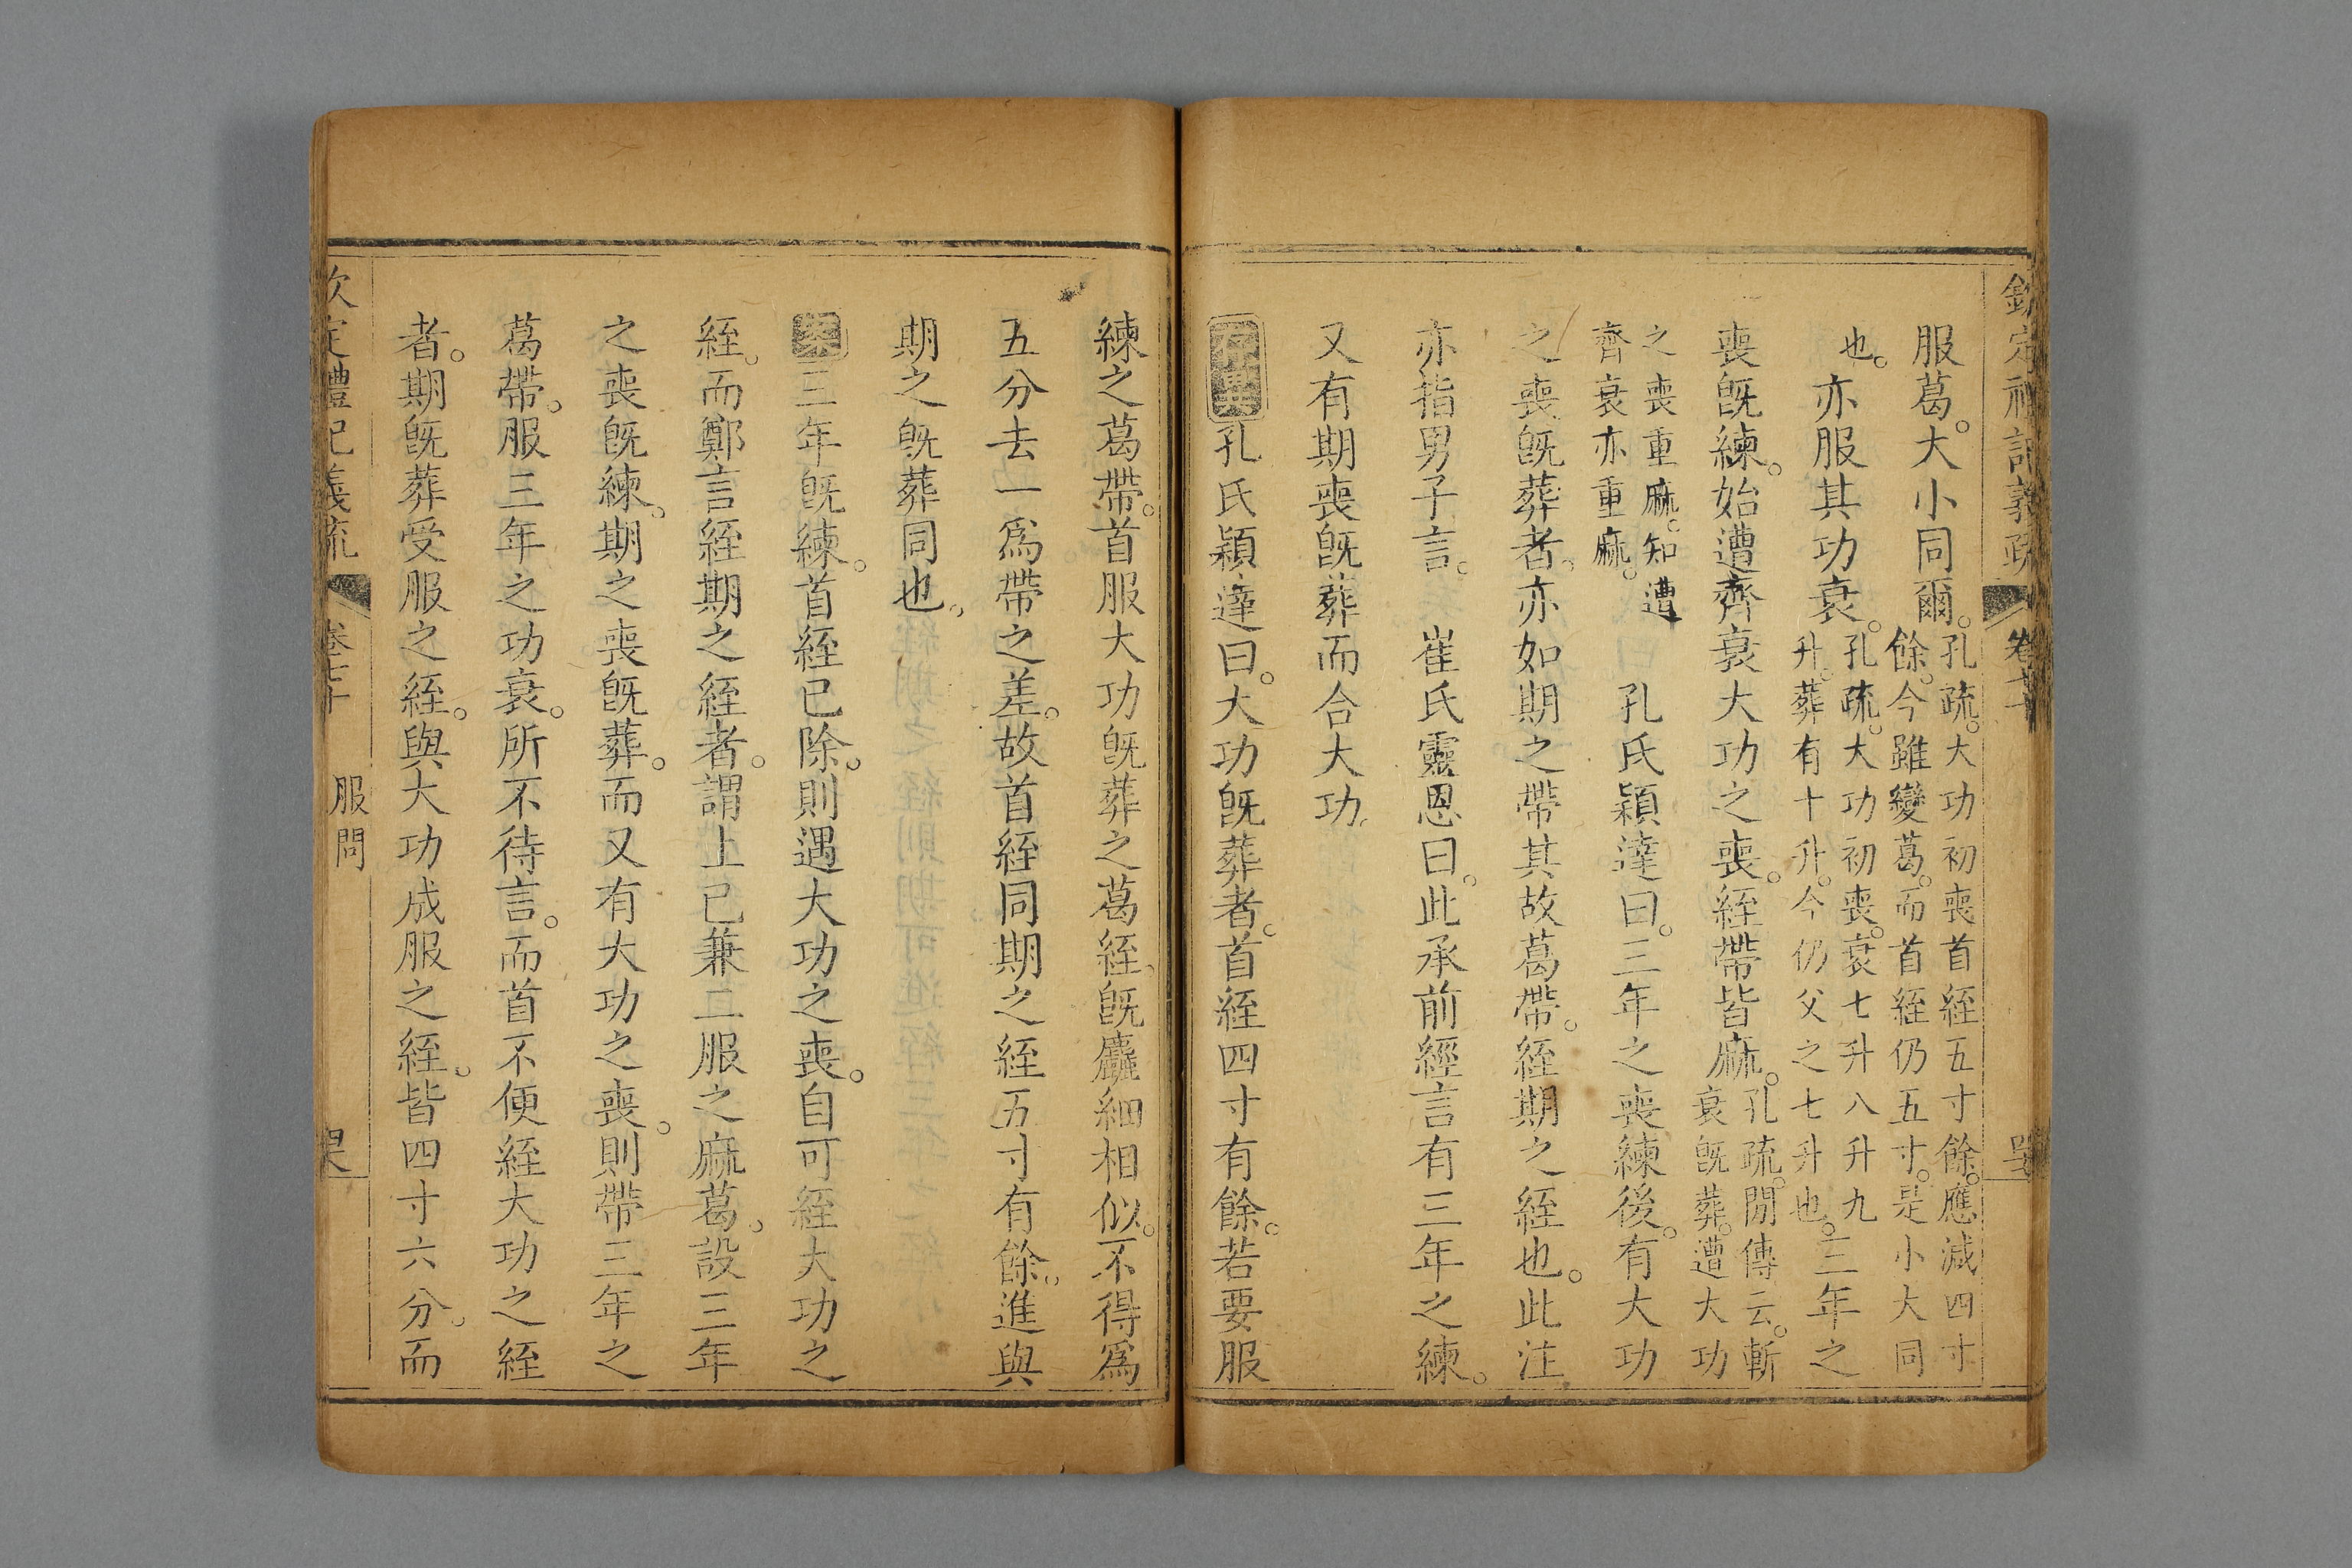 欽定禮記義疏 卷七十
服葛。大小同爾。孔疏。大功初喪首絰五寸餘。應減四寸
餘。今雖變葛。而首絰仍五寸。是小大同
也。亦服其功衰。孔疏。大功初喪。衰七升八升九
升。葬有十升。今仍父之七升也。三年之
喪旣練。始遭齊衰大功之喪。絰帶皆麻。孔疏。閒傳云。斬
衰旣葬。遭大功
之喪重麻。知遭
齊衰亦重麻。 孔氏穎達曰。三年之喪練後。有大功
之喪旣葬者。亦如期之帶其故葛帶。絰期之絰也。此注
亦指男子言。 崔氏靈恩曰。此承前經言有三年之練。
又有期喪旣葬而合大功。
存異孔氏穎達曰。大功旣葬者。首絰四寸有餘。若要服
練之葛帶。首服大功旣葬之葛絰。旣麤細相似。不得爲
五分去一爲帶之差。故首絰同期之絰五寸有餘。進與
期之旣葬同也。
案三年旣練。首絰已除。則遇大功之喪。自可絰大功之
絰。而鄭言絰期之絰者。謂上已兼二服之麻葛。設三年
之喪旣練。期之喪旣葬。而又有大功之喪。則帶三年之
葛帶。服三年之功衰。所不待言。而首不便絰大功之絰
者。期旣葬受服之絰。與大功成服之絰。皆四寸六分。而
欽定禮記義疏 卷七十 服問